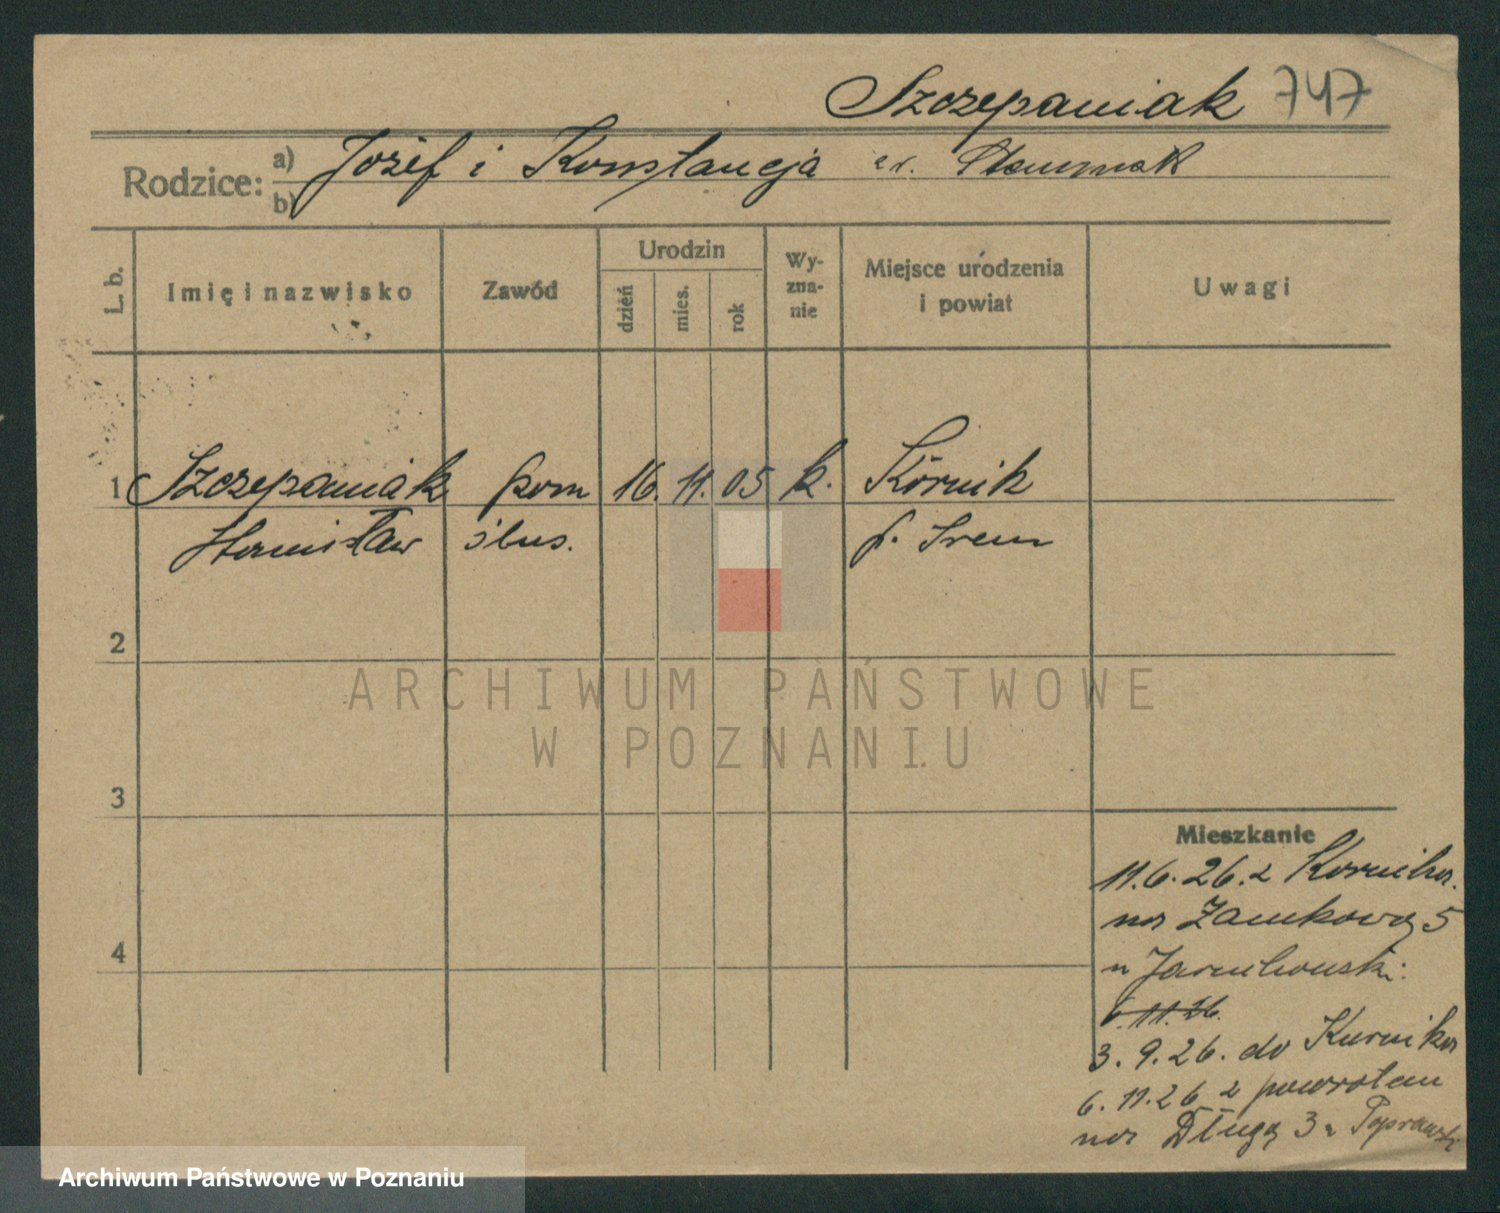 Szczepaniak 747
Rodzice: a) Józef i Konstancja
b)
L. b. Imię i nazwisko Zawód Urodzin dzień mies. rok Wy-zna-nie Miejsce urodzenia i powiat Uwagi
1 Szczepaniak pom 16. 11. 05 k. Kórnik
Stanisław ślus. p. Śrem
2
3
4
Mieszkanie
11.6.26. z Kornika
na Zamkową 5
u
6.11.26.
3.9.26. do Kurnika
6.11.26 z powrotem
na Długą 3 u
ARCHIWUM PAŃSTWOWE
W POZNANIU
Archiwum Państwowe w Poznaniu